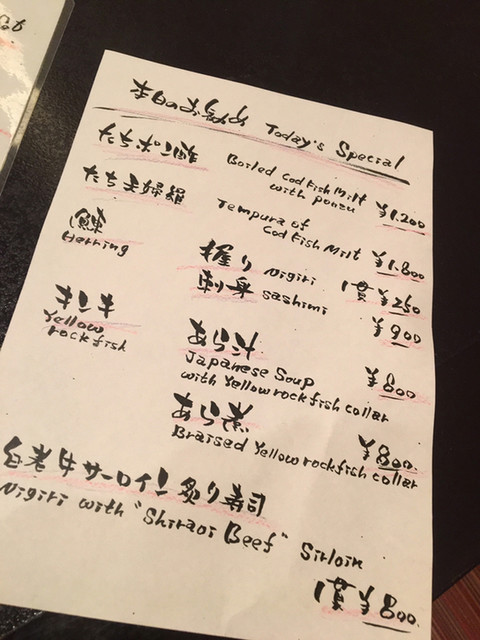 本日のお勧め Today's Special
たちポン酢 Boiled Cod Fish Milt
with ponzu ¥1.200
たち天婦羅 Tempura of
Cod Fish Milt ¥1.800
鰊 握り Nigiri 1貫 ¥250
Herring 刺身 sashimi ¥900
キンキ あら汁
Yellow Japanese Soup ¥800
rockfish with Yellow rockfish collar
あら煮 ¥800.
Braised Yellow rockfish collar
白老牛サーロイン 炙り寿司
Nigiri with "Shiraoi Beef" Sirloin
1貫 ¥800.